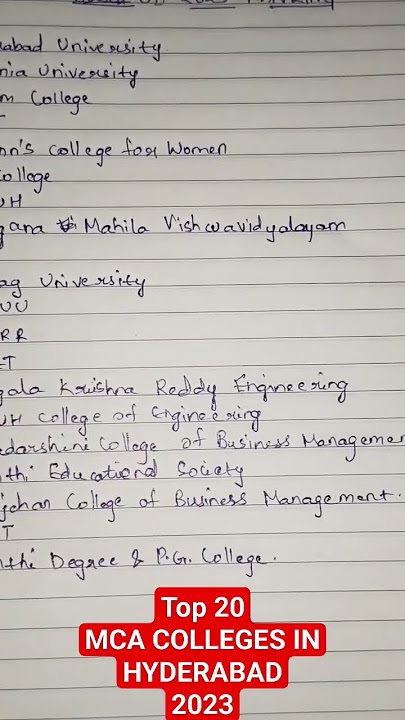 abad University
nia University
m College
T
nn's College for Women
College
UH
gana Mahila Vishwavidyalayam
ag University
UU
RR
ET
gala Krishna Reddy Engineering
UH College of Engineering
adarshini College of Business Managemen
thi Educational Society
jchan College of Business Management.
T
nthi Degree & P.G. College.
Top 20
MCA COLLEGES IN
HYDERABAD
2023